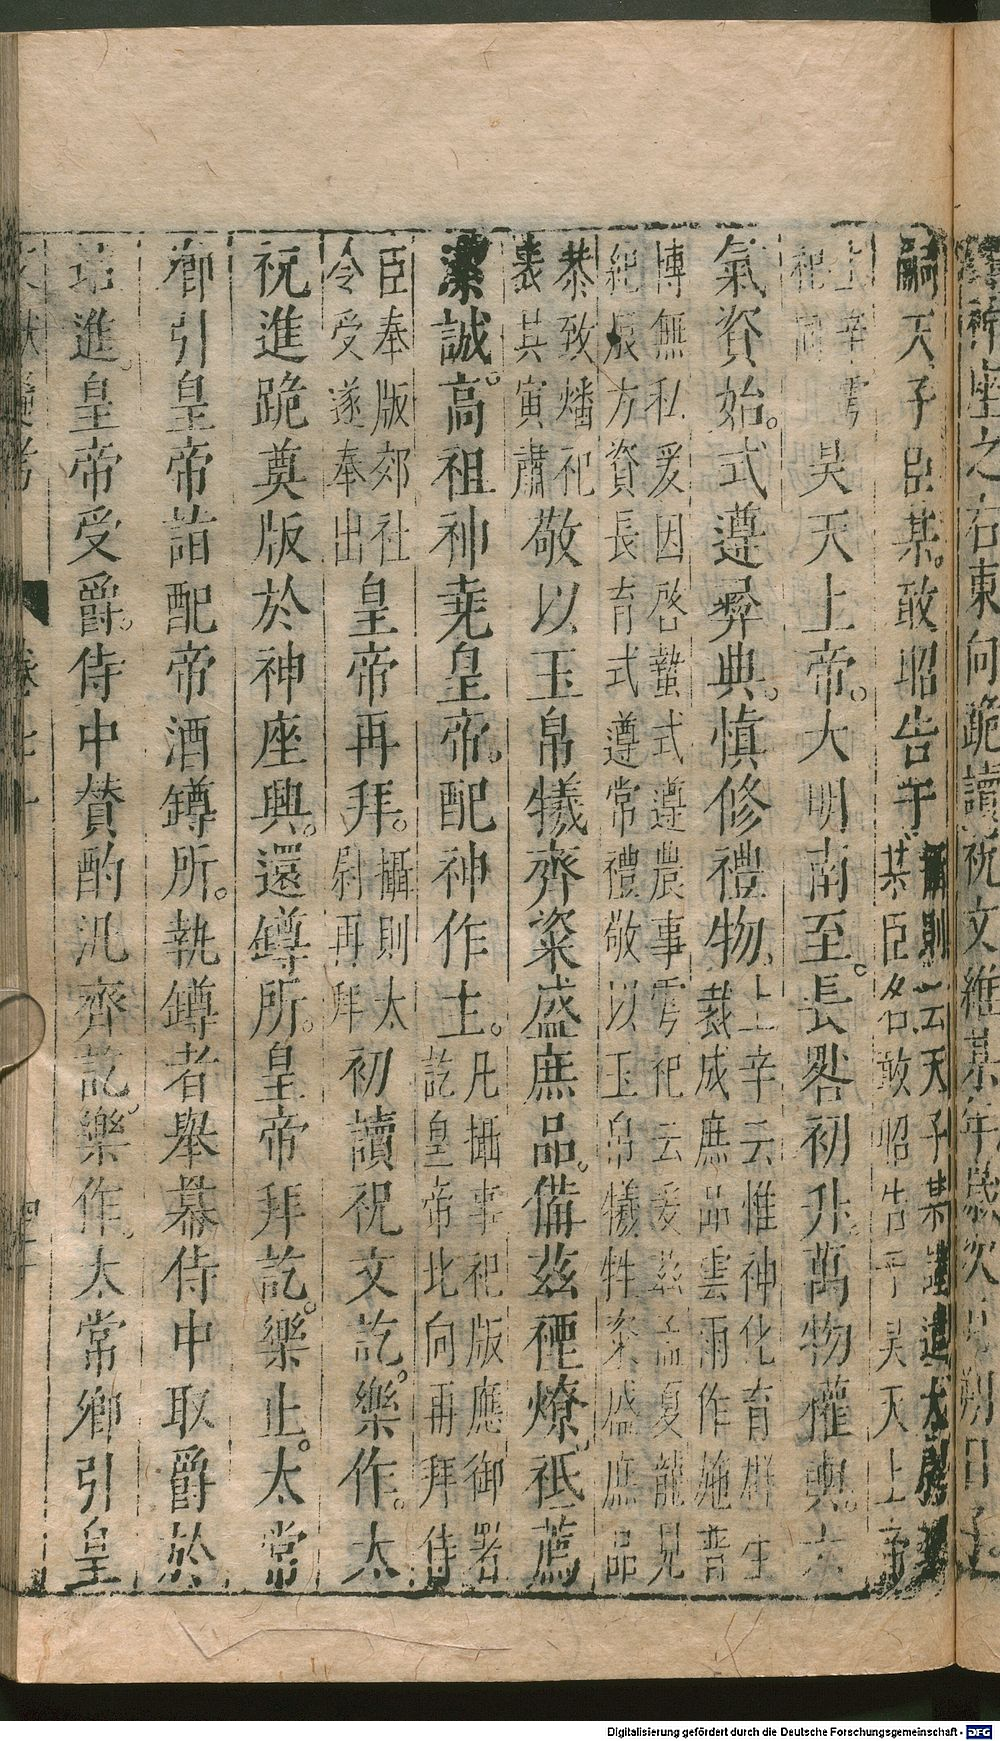 神座之右東向跪讀祝文維某年歲次月朔日子
嗣天子臣某。敢昭告于攝則云天子某謹遣太尉
某臣名敢昭告于昊天上帝
上辛雩
祀同昊天上帝。大明南至。長晷初升。萬物權輿。六
氣資始。式遵彝典。慎修禮物、上辛云惟神化育群生
裁成庶品雲雨作施普
博無私爰因啓蟄式遵農事雩祀云爰茲孟夏龍見
紀辰方資長育式遵常禮敬以玉帛犧牲粢盛庶品
恭致燔祀
表其寅肅敬以玉帛犧齊粢盛庶品。備茲禋燎。祗薦
潔誠。高祖神堯皇帝。配神作主。凡攝事祀版應御署
訖皇帝北向再拜侍
臣奉版郊社
令受遂奉出皇帝再拜。攝則太
尉再拜初讀祝文訖。樂作。太
祝進跪奠版於神座興。還罇所。皇帝拜訖。樂止。太常
卿引皇帝詣配帝酒罇所。執罇者舉冪侍中取爵於
坫進。皇帝受爵。侍中贊酌汎齊訖。樂作。太常卿引皇
文獻通考 卷七十
Digitalisierung gefördert durch die Deutsche Forschungsgemeinschaft - DFG